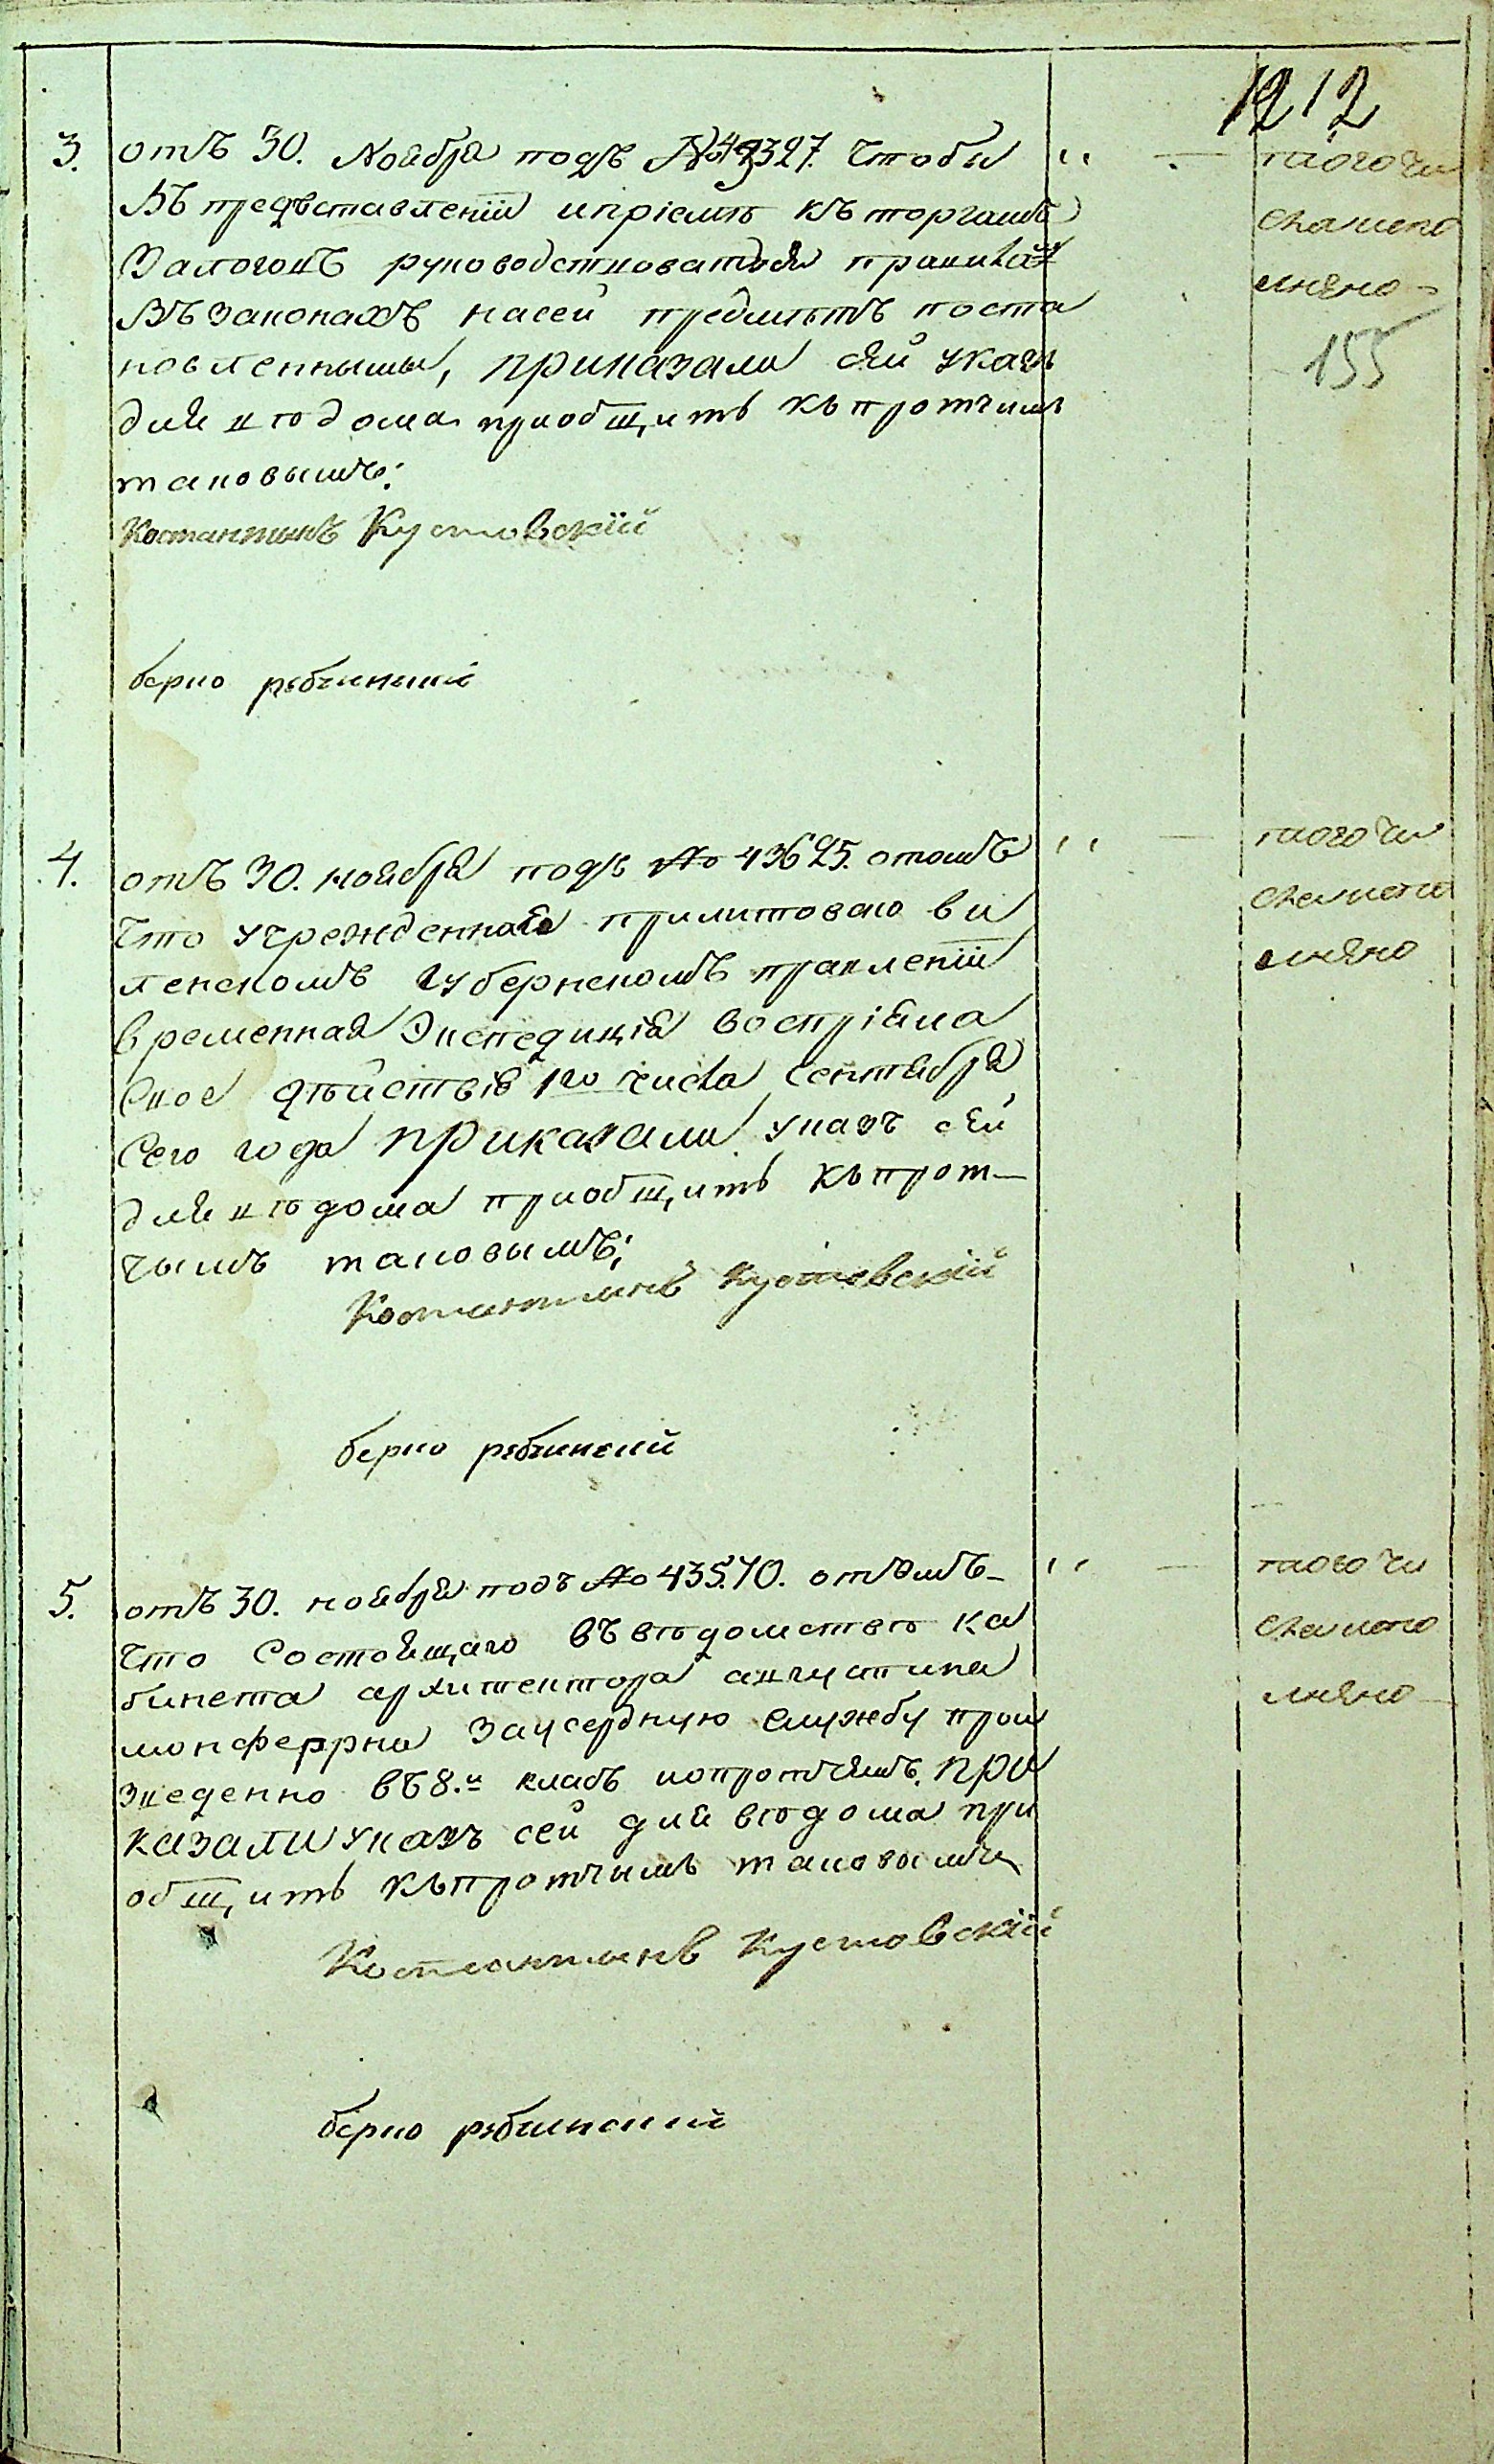 1212
3. отъ 30. Ноября подъ № 49327. Чтобы
Въ предъставленіи и пріемѣ къ торгамъ
Залоговъ руководствоватся правила
Въ законахъ на сей предмѣтъ поста
новленными, приказали сей указъ
для вѣдома приобщить къ протчимъ
таковымъ:
Костантинъ Кустовскій
верно
того чи
сла испо
лнено
155
4. отъ 30. ноября подъ № 43625. отомъ
Что учрежденная прилитовско ви
ленскомъ Губернскомъ правленіи
временная Экспедиція воспріяла
Свое дѣйствіе 1го числа сентября
Сего года приказали указъ сей
для вѣдома приобщить къ прот-
чымъ таковымъ;
Костантинъ Кустовскій
верно
того чи
сла испо
лнено
5. отъ 30. ноября подъ № 43570. отомъ-
Что Состоящаго въ вѣдомствѣ Ка
бинета архитектора августина
монферрна за усердную службу прои
зведенно въ 8.й класъ и о протчемъ. при
казали указъ сей для вѣдома при
общить къ протчимъ таковымъ
Костантинъ Кустовскій
верно
того чи
сла испо
лнено